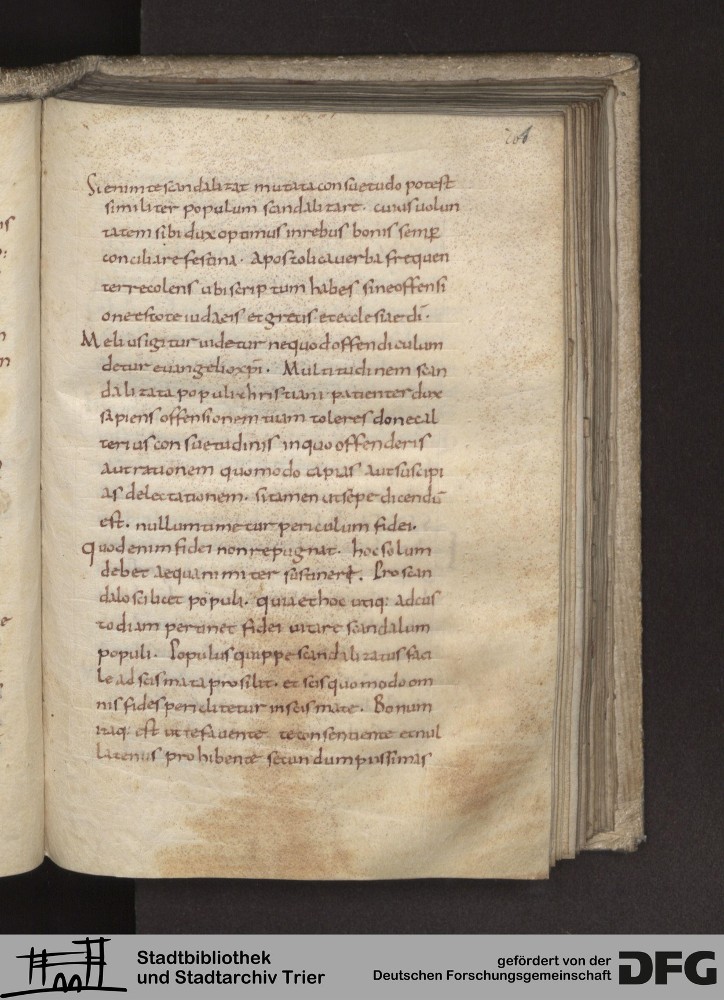 201
Si enim te scandalizat mutata consuetudo potest
similiter populum scandalizare. cuius volun
tatem sibi dux optimus in rebus bonis semp
conciliare festina. apostolica verba frequen
ter recolens ubi scriptum habes sine offensi
one estote iudaeis et grecis et ecclesiae di.
Melius igitur videtur ne quod offendiculum
detur euangelio xpi. Multitudinem scan
dalizata populi christiani patienter dux
sapiens offensionem tuam toleres donec al
terius consuetudinis in quo offenderis
aut rationem quomodo capias aut suscipi
as delectationem. si tamen ut sepe dicendū
est. nullum timetur periculum fidei.
Quod enim fidei non repugnat. hoc solum
debet aequanimiter sustinere. Pro scan
dalo scilicet populi. quia et hoc utiq: ad cus
todiam pertinet fidei vitare scandalum
populi. Populus quippe scandalizatus faci
le ad scismata prosilit. et scis quomodo om
nis fides periclitetur in scismate. Bonum
itaq: est ut te favente te consentiente et nul
latenus prohibente secundum piissimas
Stadtbibliothek
und Stadtarchiv Trier
gefördert von der
Deutschen Forschungsgemeinschaft
DFG